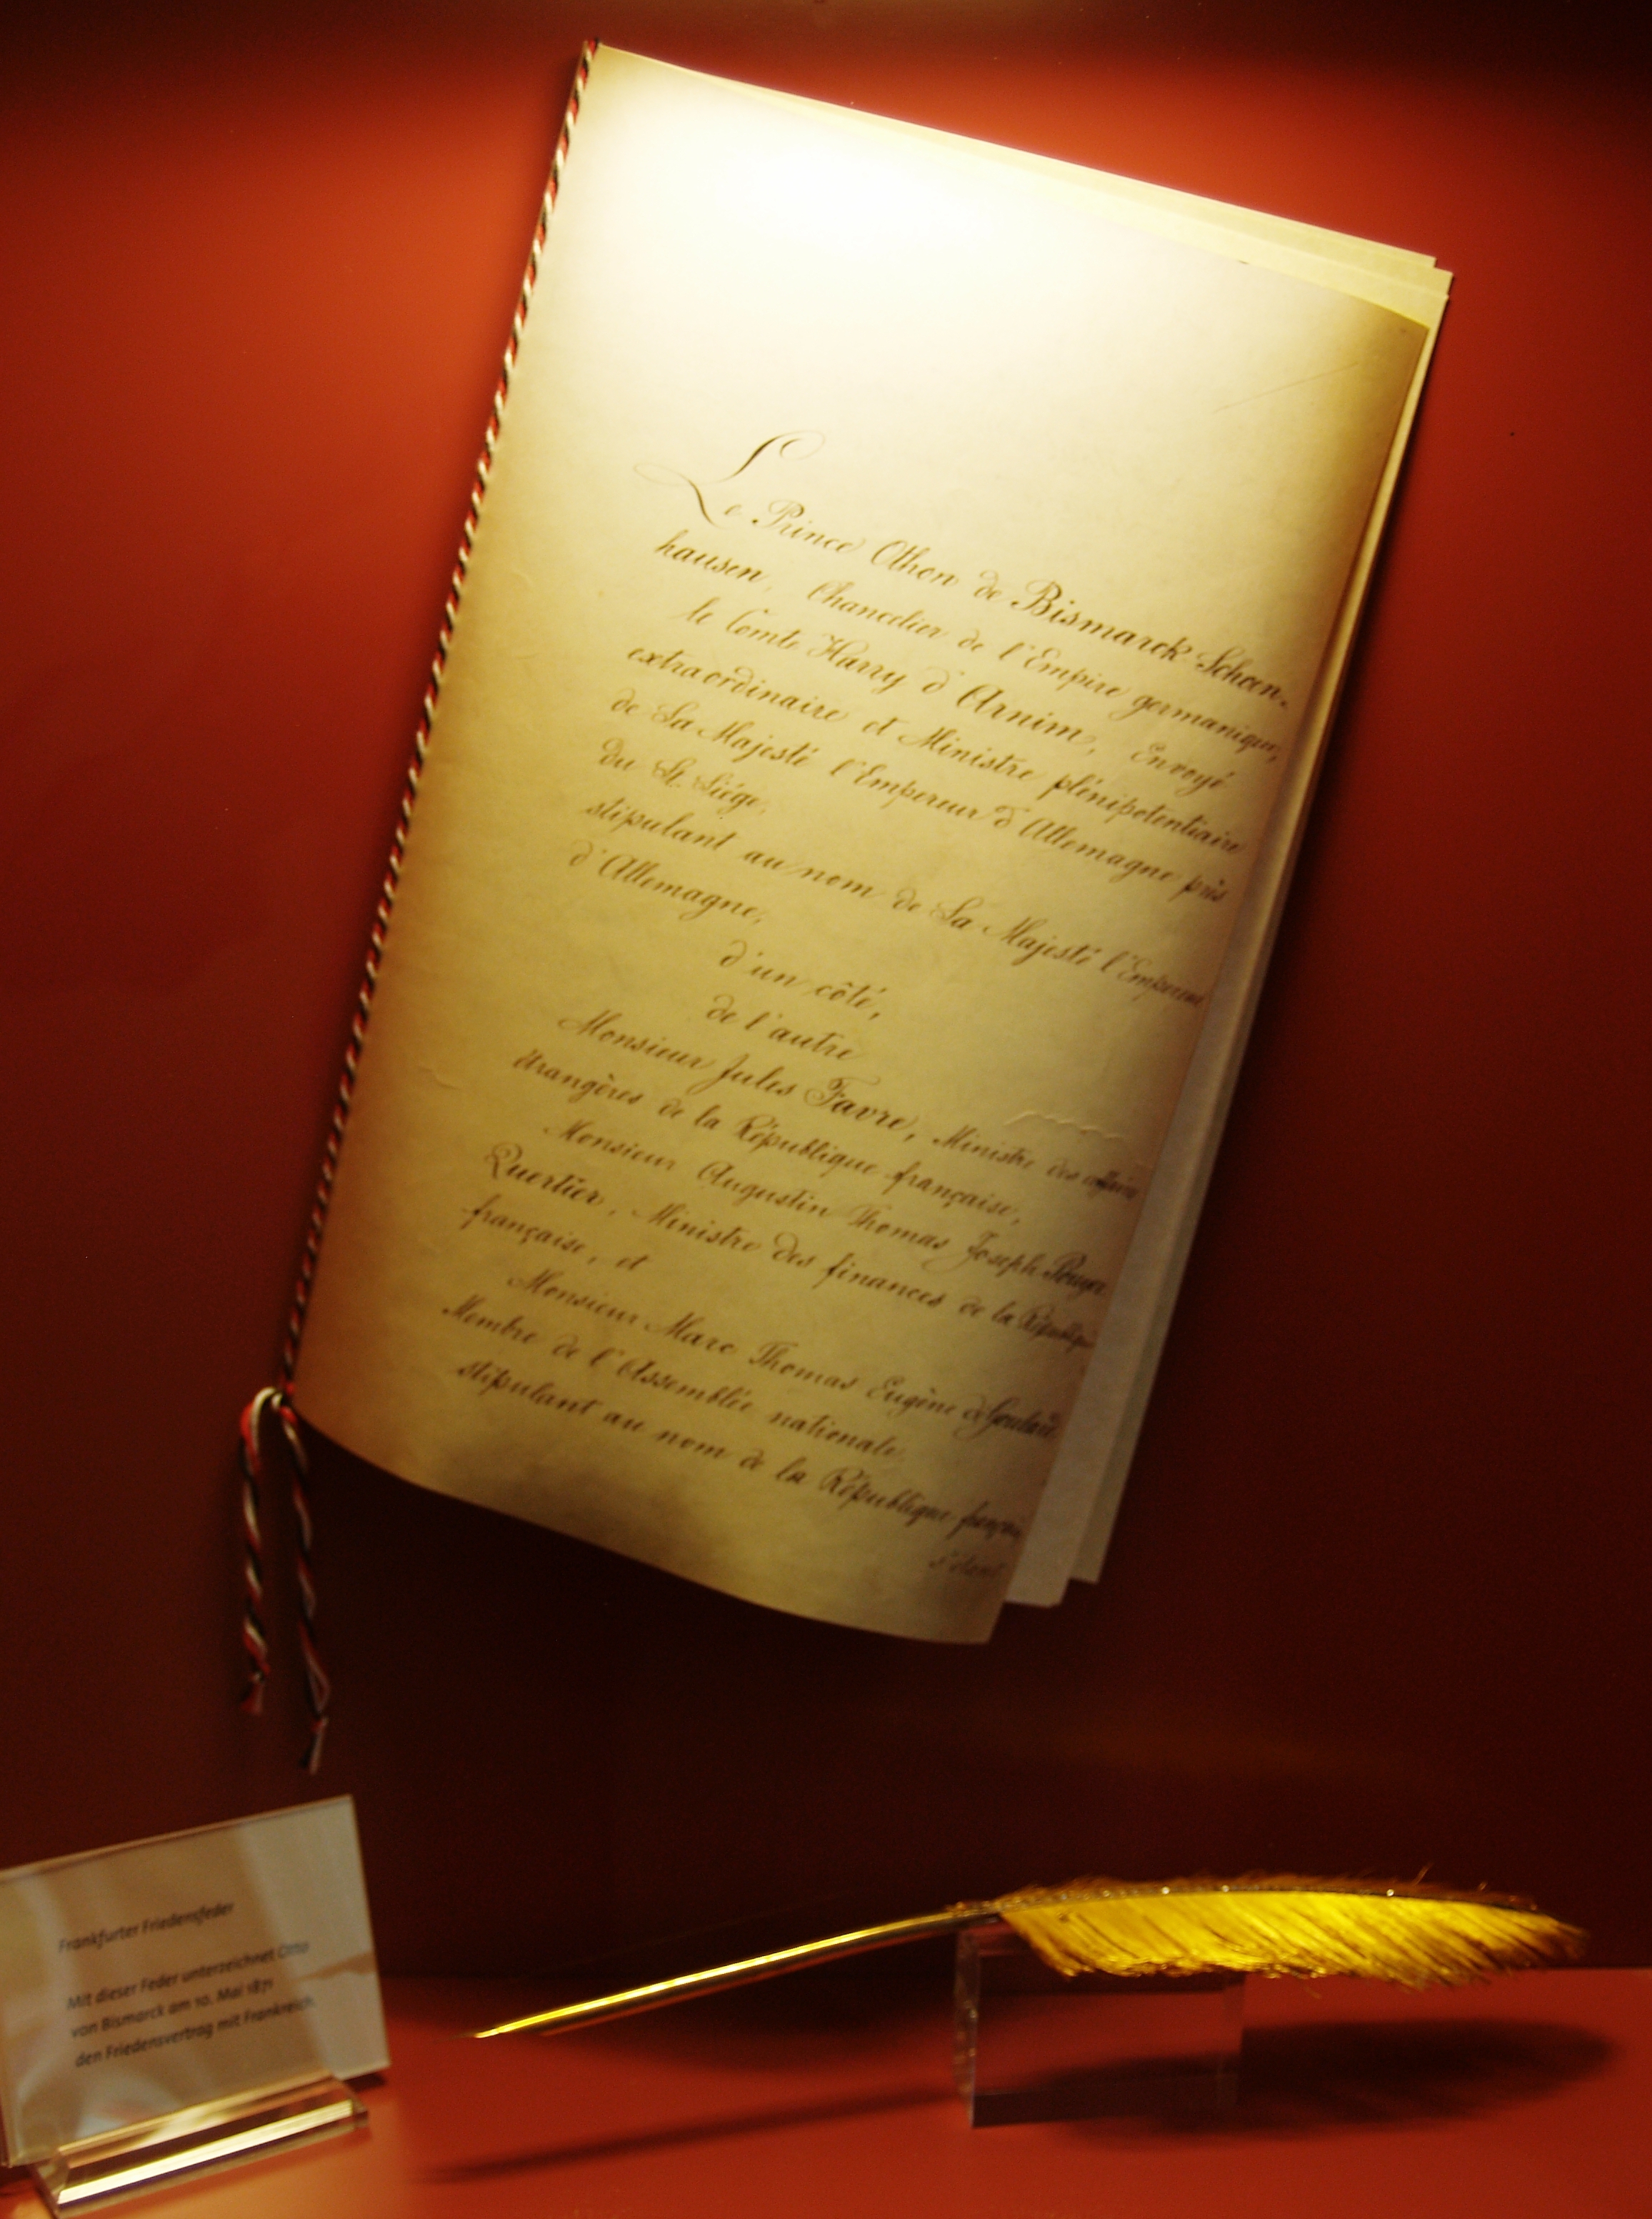 Le Prince Othon de Bismarck-Schoen-
hausen, Chancelier de l'Empire germanique,
le Comte Harry d'Arnim, Envoyé
extraordinaire et Ministre plénipotentiaire
de Sa Majesté l'Empereur d'Allemagne près
du St. Siége,
stipulant au nom de Sa Majesté l'Empereur
d'Allemagne,
d'un côté,
de l'autre
Monsieur Jules Favre, Ministre des affaires
étrangères de la République française,
Monsieur Augustin Thomas Joseph Pouyer
Quertier, Ministre des finances de la République
française, et
Monsieur Marc Thomas Eugène de Goulard,
Membre de l'Assemblée nationale,
stipulant au nom de la République française
s'étant
Frankfurter Friedensfeder
Mit dieser Feder unterzeichnet Otto
von Bismarck am 10. Mai 1871
den Friedensvertrag mit Frankreich.